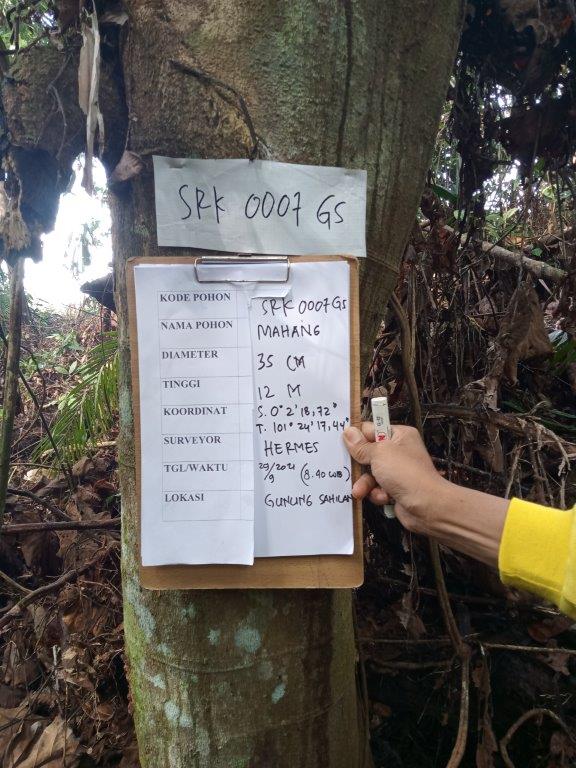 SRK 0007 GS
KODE POHON SRK 0007 GS
NAMA POHON MAHANG
DIAMETER 35 CM
TINGGI 12 M
KOORDINAT S. 0° 2' 18,72"
T. 101° 24' 17,44"
SURVEYOR HERMES
TGL/WAKTU 29/9 2021 (8.40 WIB)
LOKASI GUNUNG SAHILAN